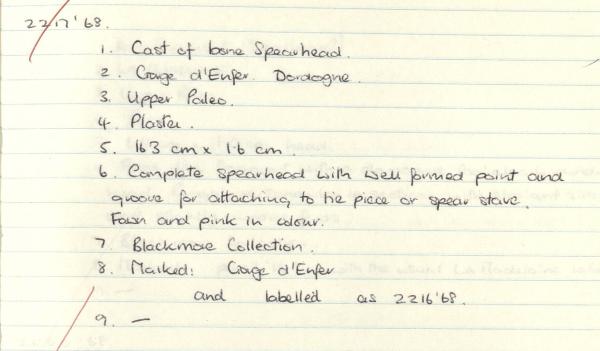 2217'68.
1. Cast of bone Spearhead.
2. Gorge d'Enfer. Dordogne.
3. Upper Paleo.
4. Plaster.
5. 16.3 cm x 1.6 cm.
6. Complete spearhead with well formed point and
groove for attaching to tie piece or spear stave.
Fawn and pink in colour.
7. Blackmore Collection.
8. Marked: Gorge d'Enfer
and labelled as 2216'68.
9. —